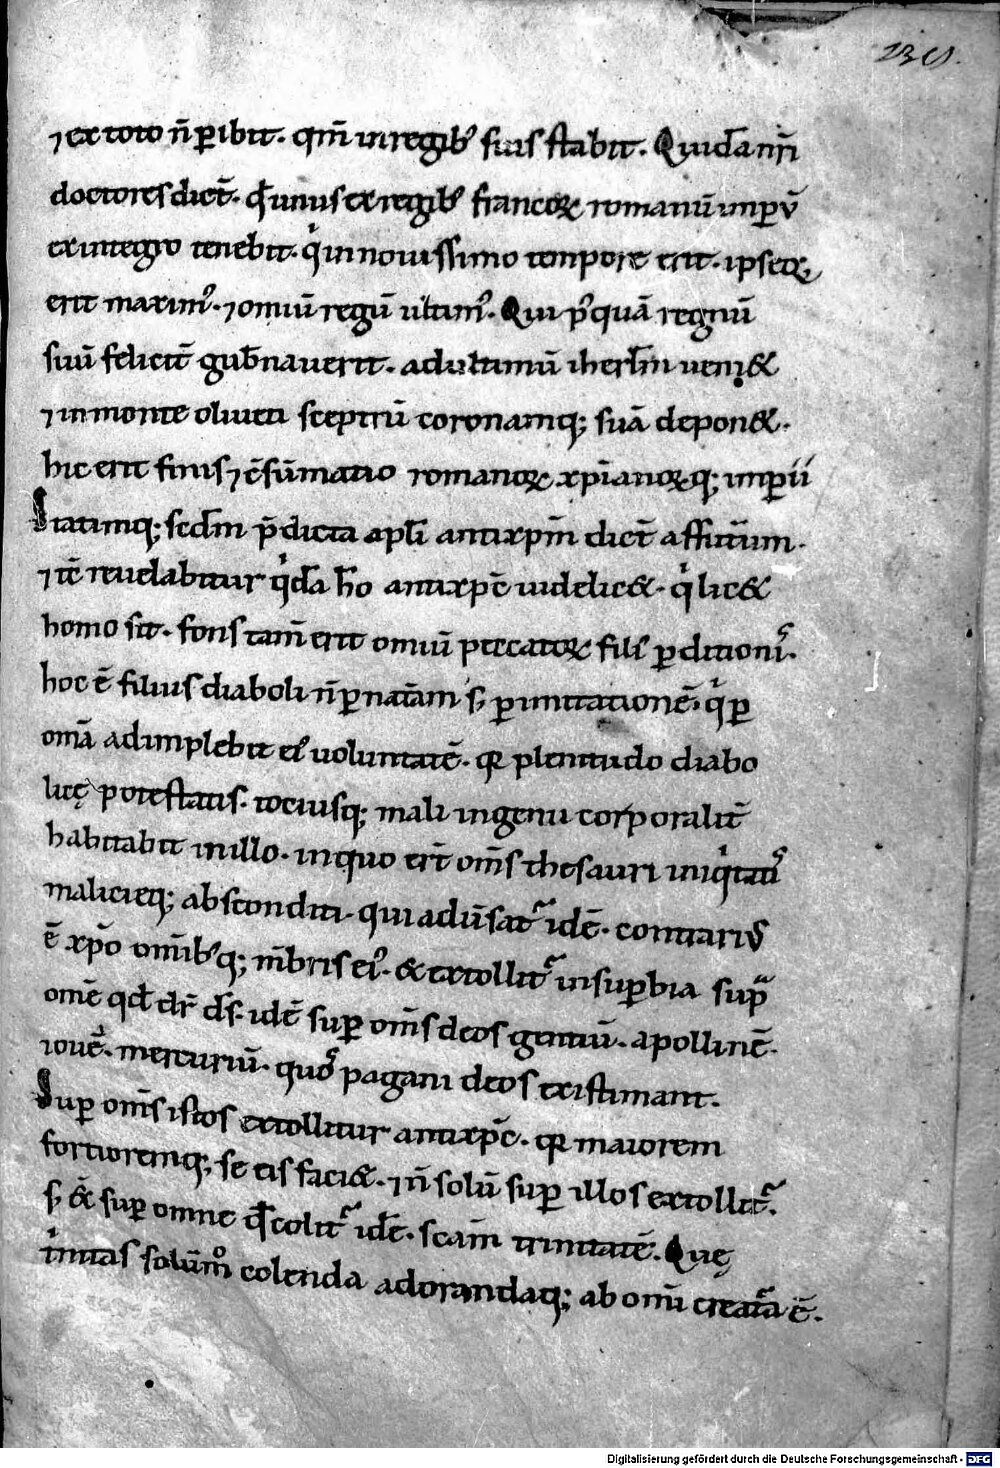 239.
⁊ ex toto n̄ ꝑibit. qm̄ in regibꝰ suis stabit. Quidā nr̄i
doctores dic̄t. qđ unus ex regibꝰ francoꝝ romanū imꝑiū
ex integro tenebit. qͥ in nouissimo tempore erit. ipseqꝫ
erit maximꝰ. ⁊ omiū regū ultimꝰ. Qui pꝰquā regnū
suū felicit̄ gub̄nauerit. ad ultimū iherl̄m ueni&
⁊ in monte oliueti sceptrū coronamq; suā depon&.
hic erit finis ⁊ c̄sūmatio romanoꝝ xp̄ianoꝝq; imꝑii
Statimq; secđm p̄dicta apl̄i antixpm̄ dic̄t affut̄um.
⁊ tc̄ reuelabitur qͥdā h̄o antixpc̄ uidelic&. qͥ lic&
homo sit. fons tam̄ erit omiū peccatoꝝ filiꝰ ꝑditionis.
hoc ē filius diaboli n̄ ꝑ natāam s; ꝑ imitationē. qͥ ꝑ
omā adimplebit eiꝰ uoluntatē. qꝛ plenitudo diabo
licę potestatis. tociusq; mali ingenii corporalit̄
habitabit in illo. in quo er̄t om̄s thesauri iniqͥtatis
malicieq; absconditi. qui adūsat᷑ idē. contrariꝰ
ē xp̄o om̄ibꝰq; mb̄ris eiꝰ. & extollit᷑ in suꝑbia supͣ
omē qđ dr̄ ds̄. idē suꝑ om̄s deos gentiū. apollinē.
iouē. mercuriū. quos pagani deos existimant.
Suꝑ om̄s istos extollitur antixpc̄. qꝛ maiorem
fortioremq; se eis faci&. ⁊ n̄ solū suꝑ illos extollit᷑.
s; &̄ suꝑ omne qđ colit᷑ idē. scām trinitatē. Quę
tͥnitas solūmͦ colenda adorandaq; ab omī creat᷑a ē.
Digitalisierung gefördert durch die Deutsche Forschungsgemeinschaft - DFG